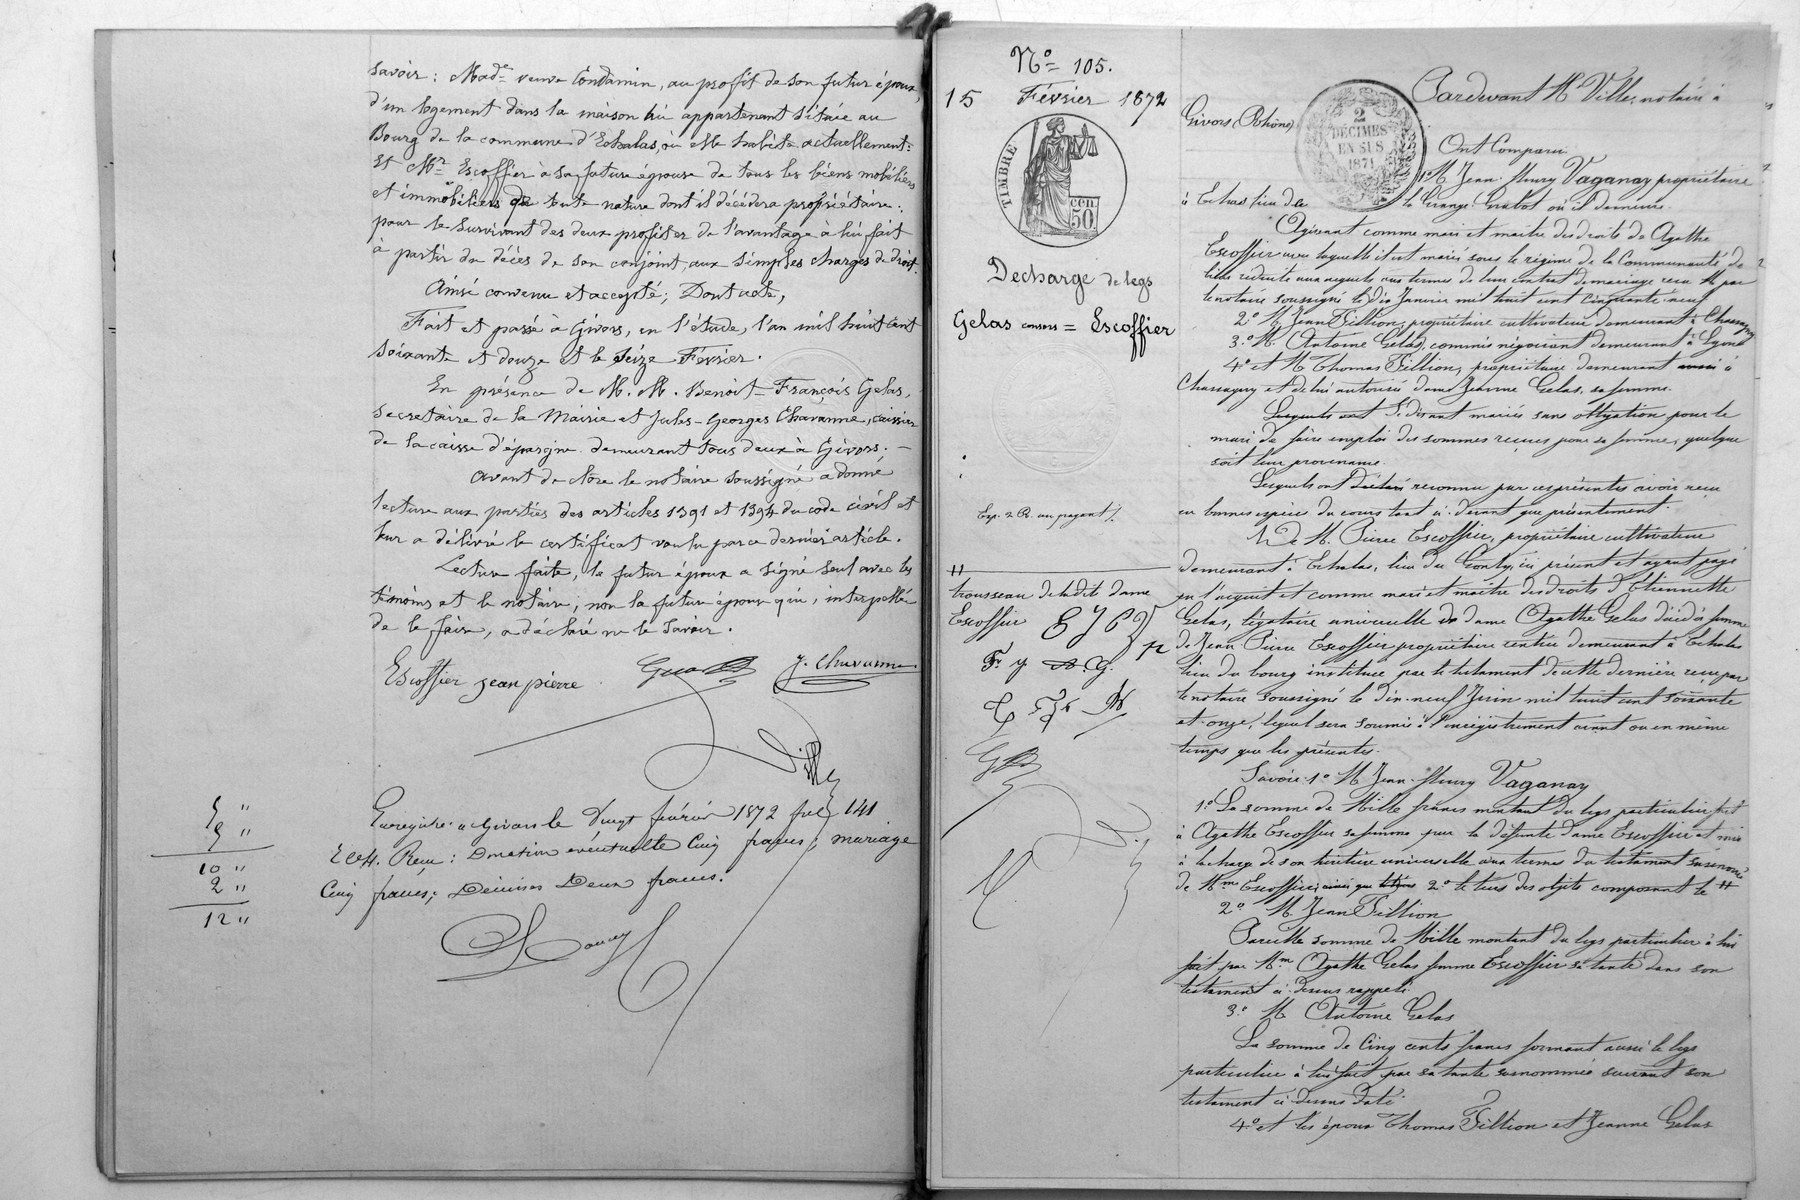 savoir: Made veuve Condamin, au profit de son futur époux,
d'un logement dans la maison lui appartenant située au
Bourg de la commune d'Echalas, où elle habite actuellement.
Et Mr Escoffier à sa future épouse de tous les biens mobiliers
et immobiliers de toute nature dont il décédera propriétaire:
pour le survivant des deux profiter de l'avantage à lui fait
à partir du décès de son conjoint, aux simples charges de droit.
Ainsi convenu et accepté; Dont acte,
Fait et passé à Givors, en l'étude, l'an mil huit cent
soixante et douze et le seize Février.
En présence de M. M. Benoit-François Gelas,
secretaire de la Mairie et Jules-Georges Chavanne, caissier
de la caisse d'épargne demeurant tous deux à Givors.
Avant de clore le notaire soussigné a donné
lecture aux parties des articles 1391 et 1394 du code civil et
leur a délivré le certificat voulu par ce dernier article.
Lecture faite, le futur époux a signé seul avec les
témoins et le notaire, non la future épouse qui, interpellée
de le faire, a déclaré ne le savoir.
Escoffier jean pierre
J. Chavanne
Ville
Enregistré à Givors le Vingt février 1872 fol 141
Reçu: Donation éventuelle Cinq francs; mariage
Cinq francs; Décimes Deux francs.
5 "
5 "
10 "
2 "
12 "
No 105.
15 Février 1872
TIMBRE
50 cen
2
DÉCIMES
EN SUS
1871
Decharge de legs
Gelas consors = Escoffier
trousseau de ladite dame
Escoffier
Pardevant Me Ville, notaire à
Givors (Rhône)
Ont Comparu
1o M. Jean-Fleury Vaganay propriétaire
à Echalas lieu de la Grange Grabot où il demeure.
Agissant comme mari et maitre des droits de Agathe
Escoffier avec laquelle il est mariés sous le régime de la Communauté de
biens réduite aux acquets aux termes de leur contrat de mariage reçu Me par
le notaire soussigné le dix Janvier mil huit cent cinquante neuf
2o M. Jean Fillion, propriétaire cultivateur demeurant à Chassagny
3o M. Antoine Gelas, commis négociant demeurant à Lyon
4o et M Thomas Fillion, propriétaire demeurant aussi à
Chassagny et de lui autorisée dame Jeanne Gelas, sa femme.
Lesquels ont dit être mariés sans obligation pour le
mari de faire emploi des sommes reçues pour sa femme, quelque
soit leur provenance.
Lesquels ont reconnu par ces présentes avoir reçu
en bonnes espèces du cours tant ci-devant que présentement.
De M. Pierre Escoffier, propriétaire cultivateur
demeurant à Echalas, lieu du Gonty, ici présent et ayant payé
en l'acquit et comme mari et maître des droits d'Etiennette
Gelas, légataire universelle de dame Agathe Gelas décédée femme
de Jean Pierre Escoffier propriétaire rentier demeurant à Echalas
lieu du bourg instituée par le testament de cette dernière reçu par
le notaire soussigné le dix-neuf Juin mil huit cent soixante
et onze, lequel sera soumis à l'enregistrement avant ou en même
temps que les présentes.
Savoir: 1o M Jean-Fleury Vaganay
1o La somme de Mille francs montant du legs particulier fait
à Agathe Escoffier sa femme par la défunte dame Escoffier et mis
à la charge de son héritière universelle aux termes du testament susénoncé
de Mme Escoffier; ainsi que 2o le legs des objets composant le #
2o M. Jean Fillion
Pareille somme de Mille montant du legs particulier à lui
fait par Mme Agathe Gelas femme Escoffier sa tante dans son
testament ci-dessus rappelé.
3o M Antoine Gelas
La somme de Cinq cents francs formant aussi le legs
particulier à lui fait par sa tante susnommée suivant son
testament ci-dessus daté.
4o et les époux Thomas Fillion et Jeanne Gelas